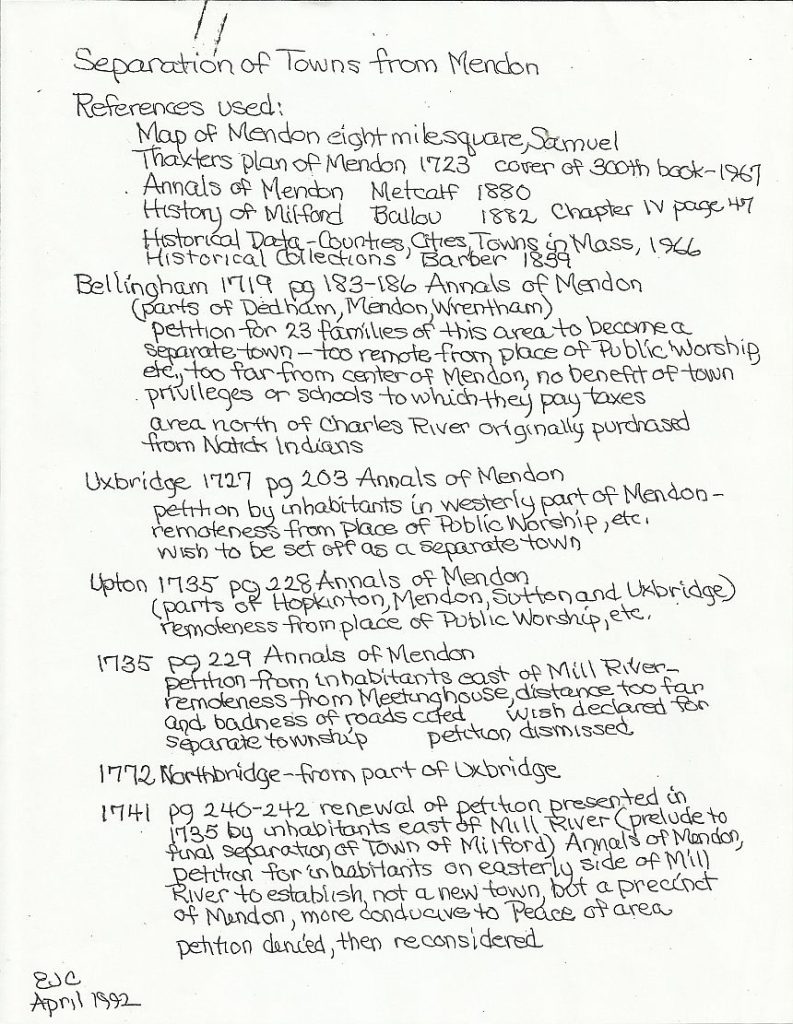 Separation of Towns from Mendon
References used:
Map of Mendon eight mile square, Samuel
Thaxters plan of Mendon 1723 cover of 300th book-1967
Annals of Mendon Metcalf 1880
History of Milford Ballou 1882 Chapter IV page 47
Historical Data-Counties, Cities, Towns in Mass, 1966
Historical Collections, Barber 1839
Bellingham 1719 pg 183-186 Annals of Mendon
(parts of Dedham, Mendon, Wrentham)
petition for 23 families of this area to become a
separate town - too remote from place of Public Worship
etc., too far from center of Mendon, no benefit of town
privileges or schools to which they pay taxes
area north of Charles River originally purchased
from Natick Indians
Uxbridge 1727 pg 203 Annals of Mendon
petition by inhabitants in westerly part of Mendon-
remoteness from place of Public Worship, etc.
wish to be set off as a separate town
Upton 1735 pg 228 Annals of Mendon
(parts of Hopkinton, Mendon, Sutton and Uxbridge)
remoteness from place of Public Worship, etc.
1735 pg 229 Annals of Mendon
petition from inhabitants east of Mill River-
remoteness from Meetinghouse, distance too far
and badness of roads cited wish declared for
separate township petition dismissed
1772 Northbridge-from part of Uxbridge
1741 pg 240-242 renewal of petition presented in
1735 by inhabitants east of Mill River (prelude to
final separation of Town of Milford) Annals of Mendon,
petition for inhabitants on easterly side of Mill
River to establish, not a new town, but a precinct
of Mendon, more conducive to Peace of area
petition denied, then reconsidered
EJC
April 1992